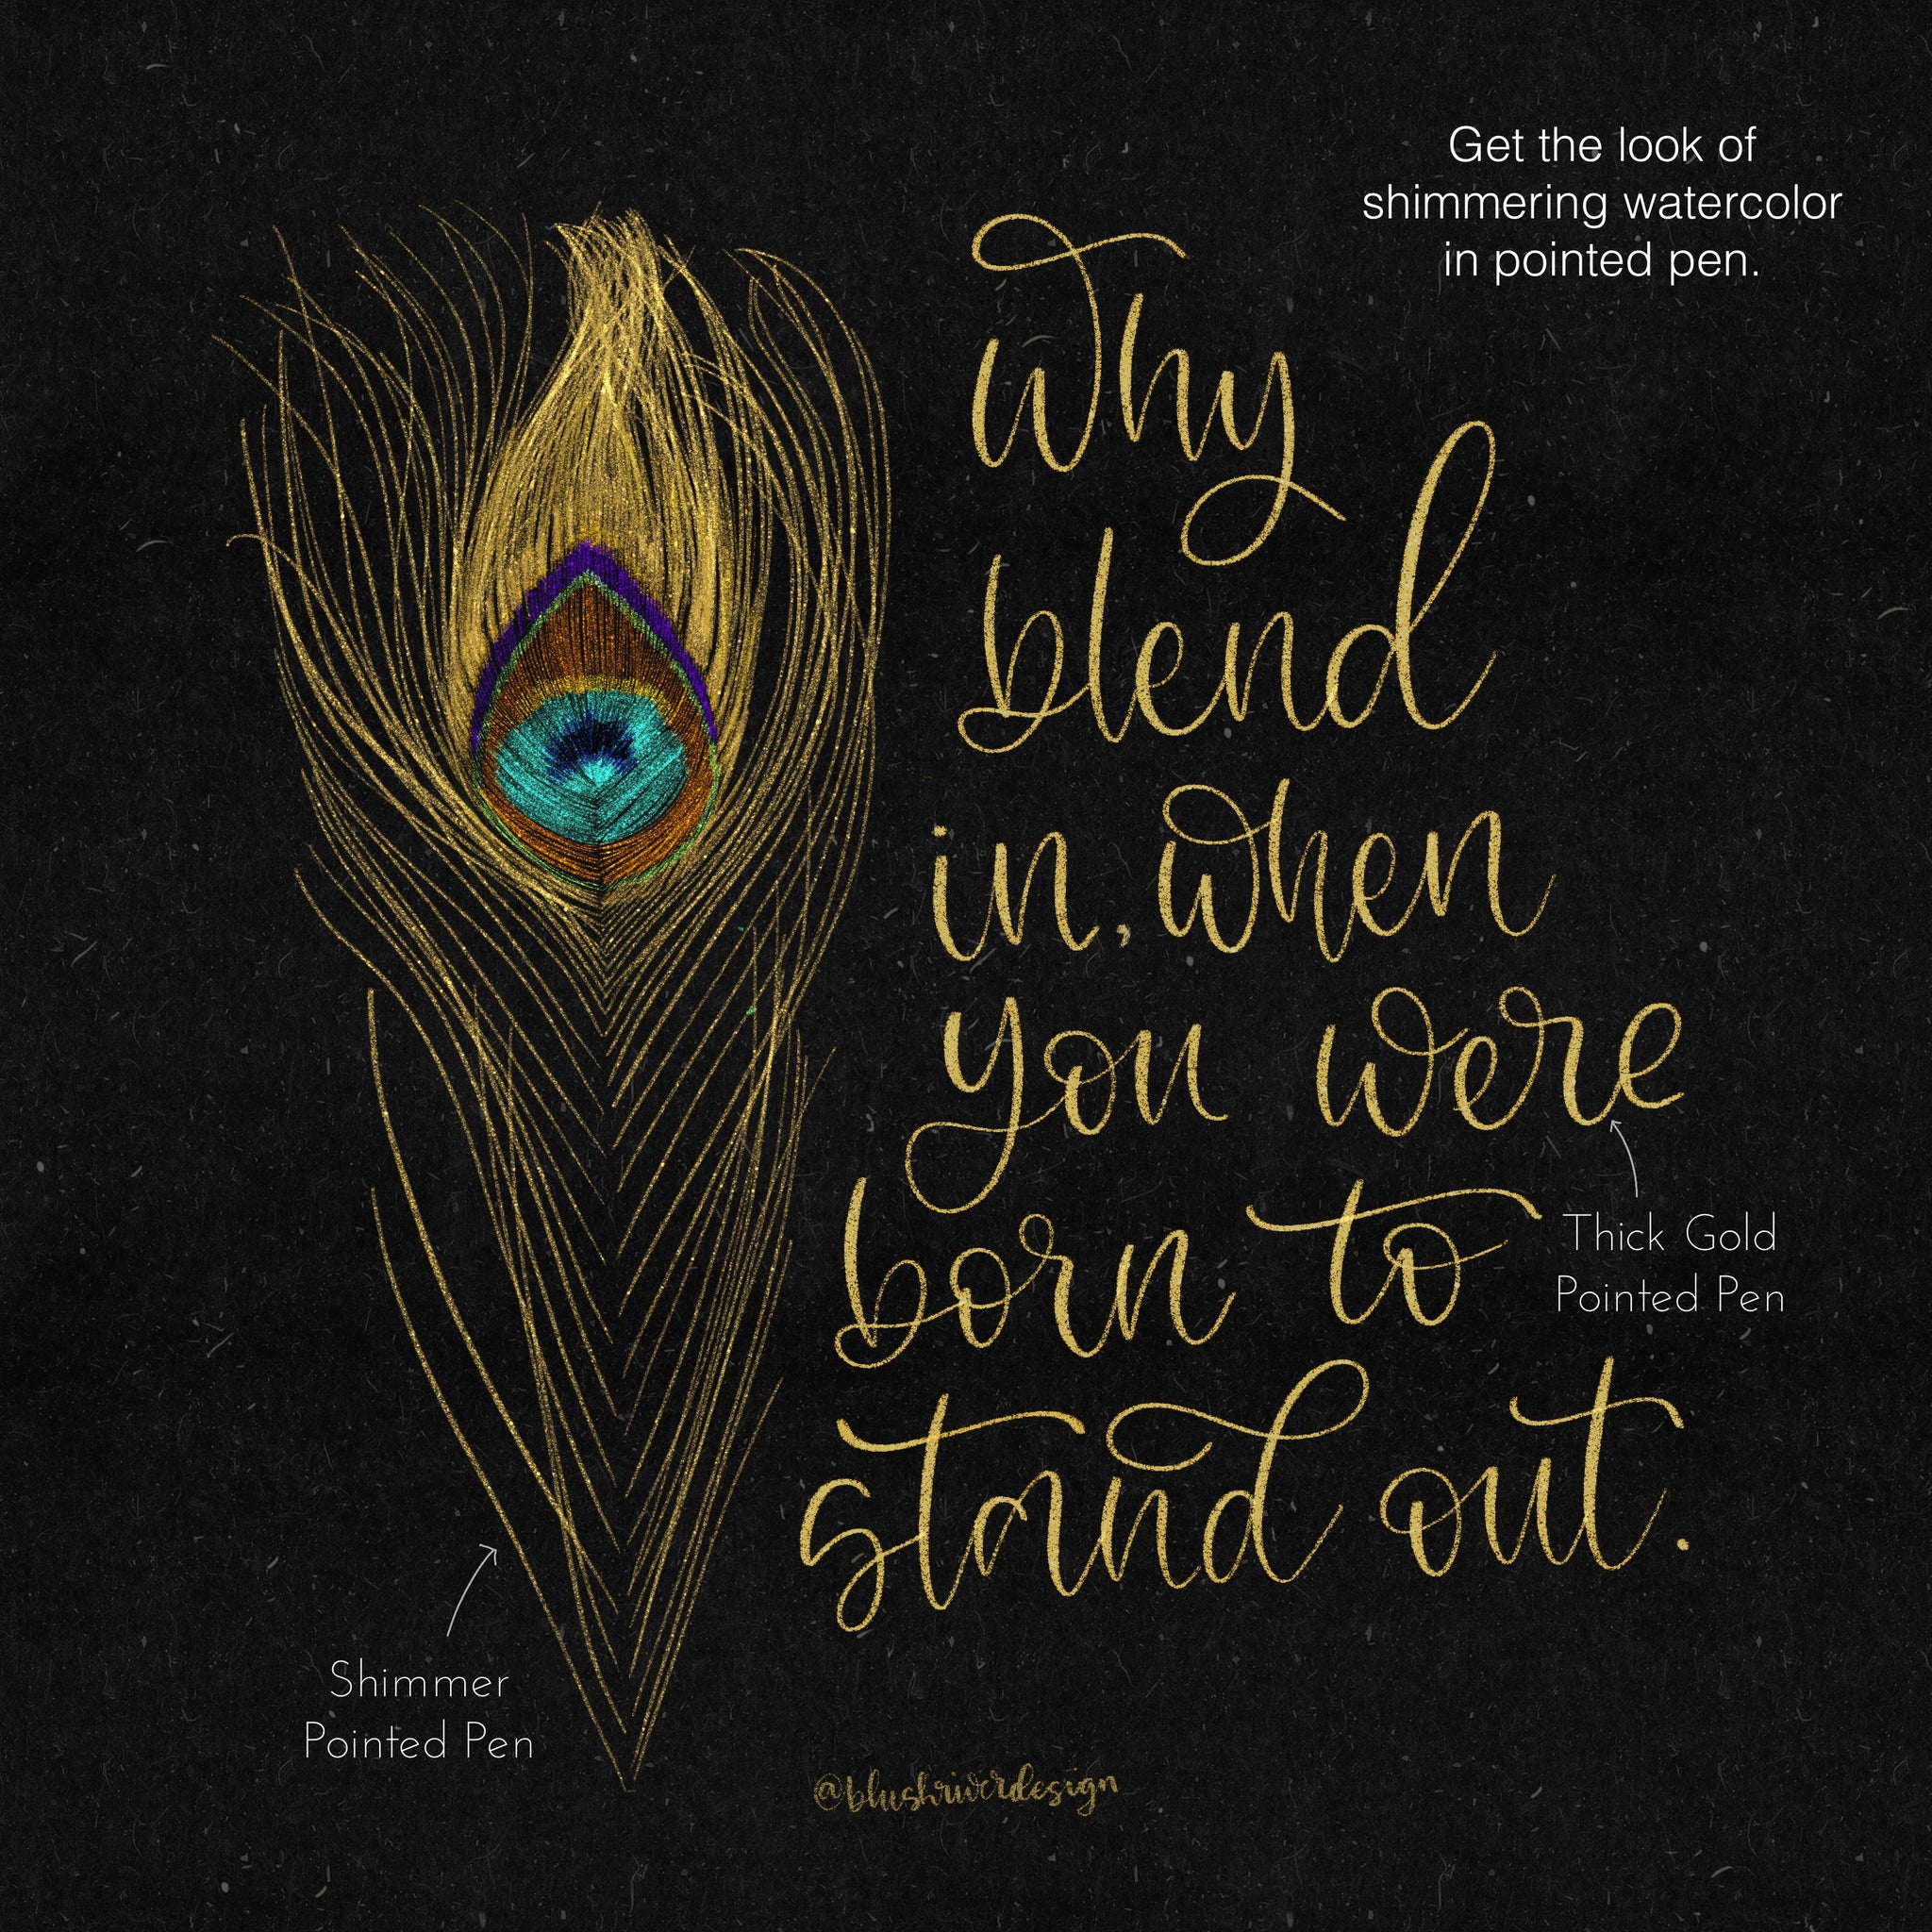 Get the look of
shimmering watercolor
in pointed pen.
Why
blend
in, when
you were
born to
stand out.
Thick Gold
Pointed Pen
Shimmer
Pointed Pen
@blushriverdesign